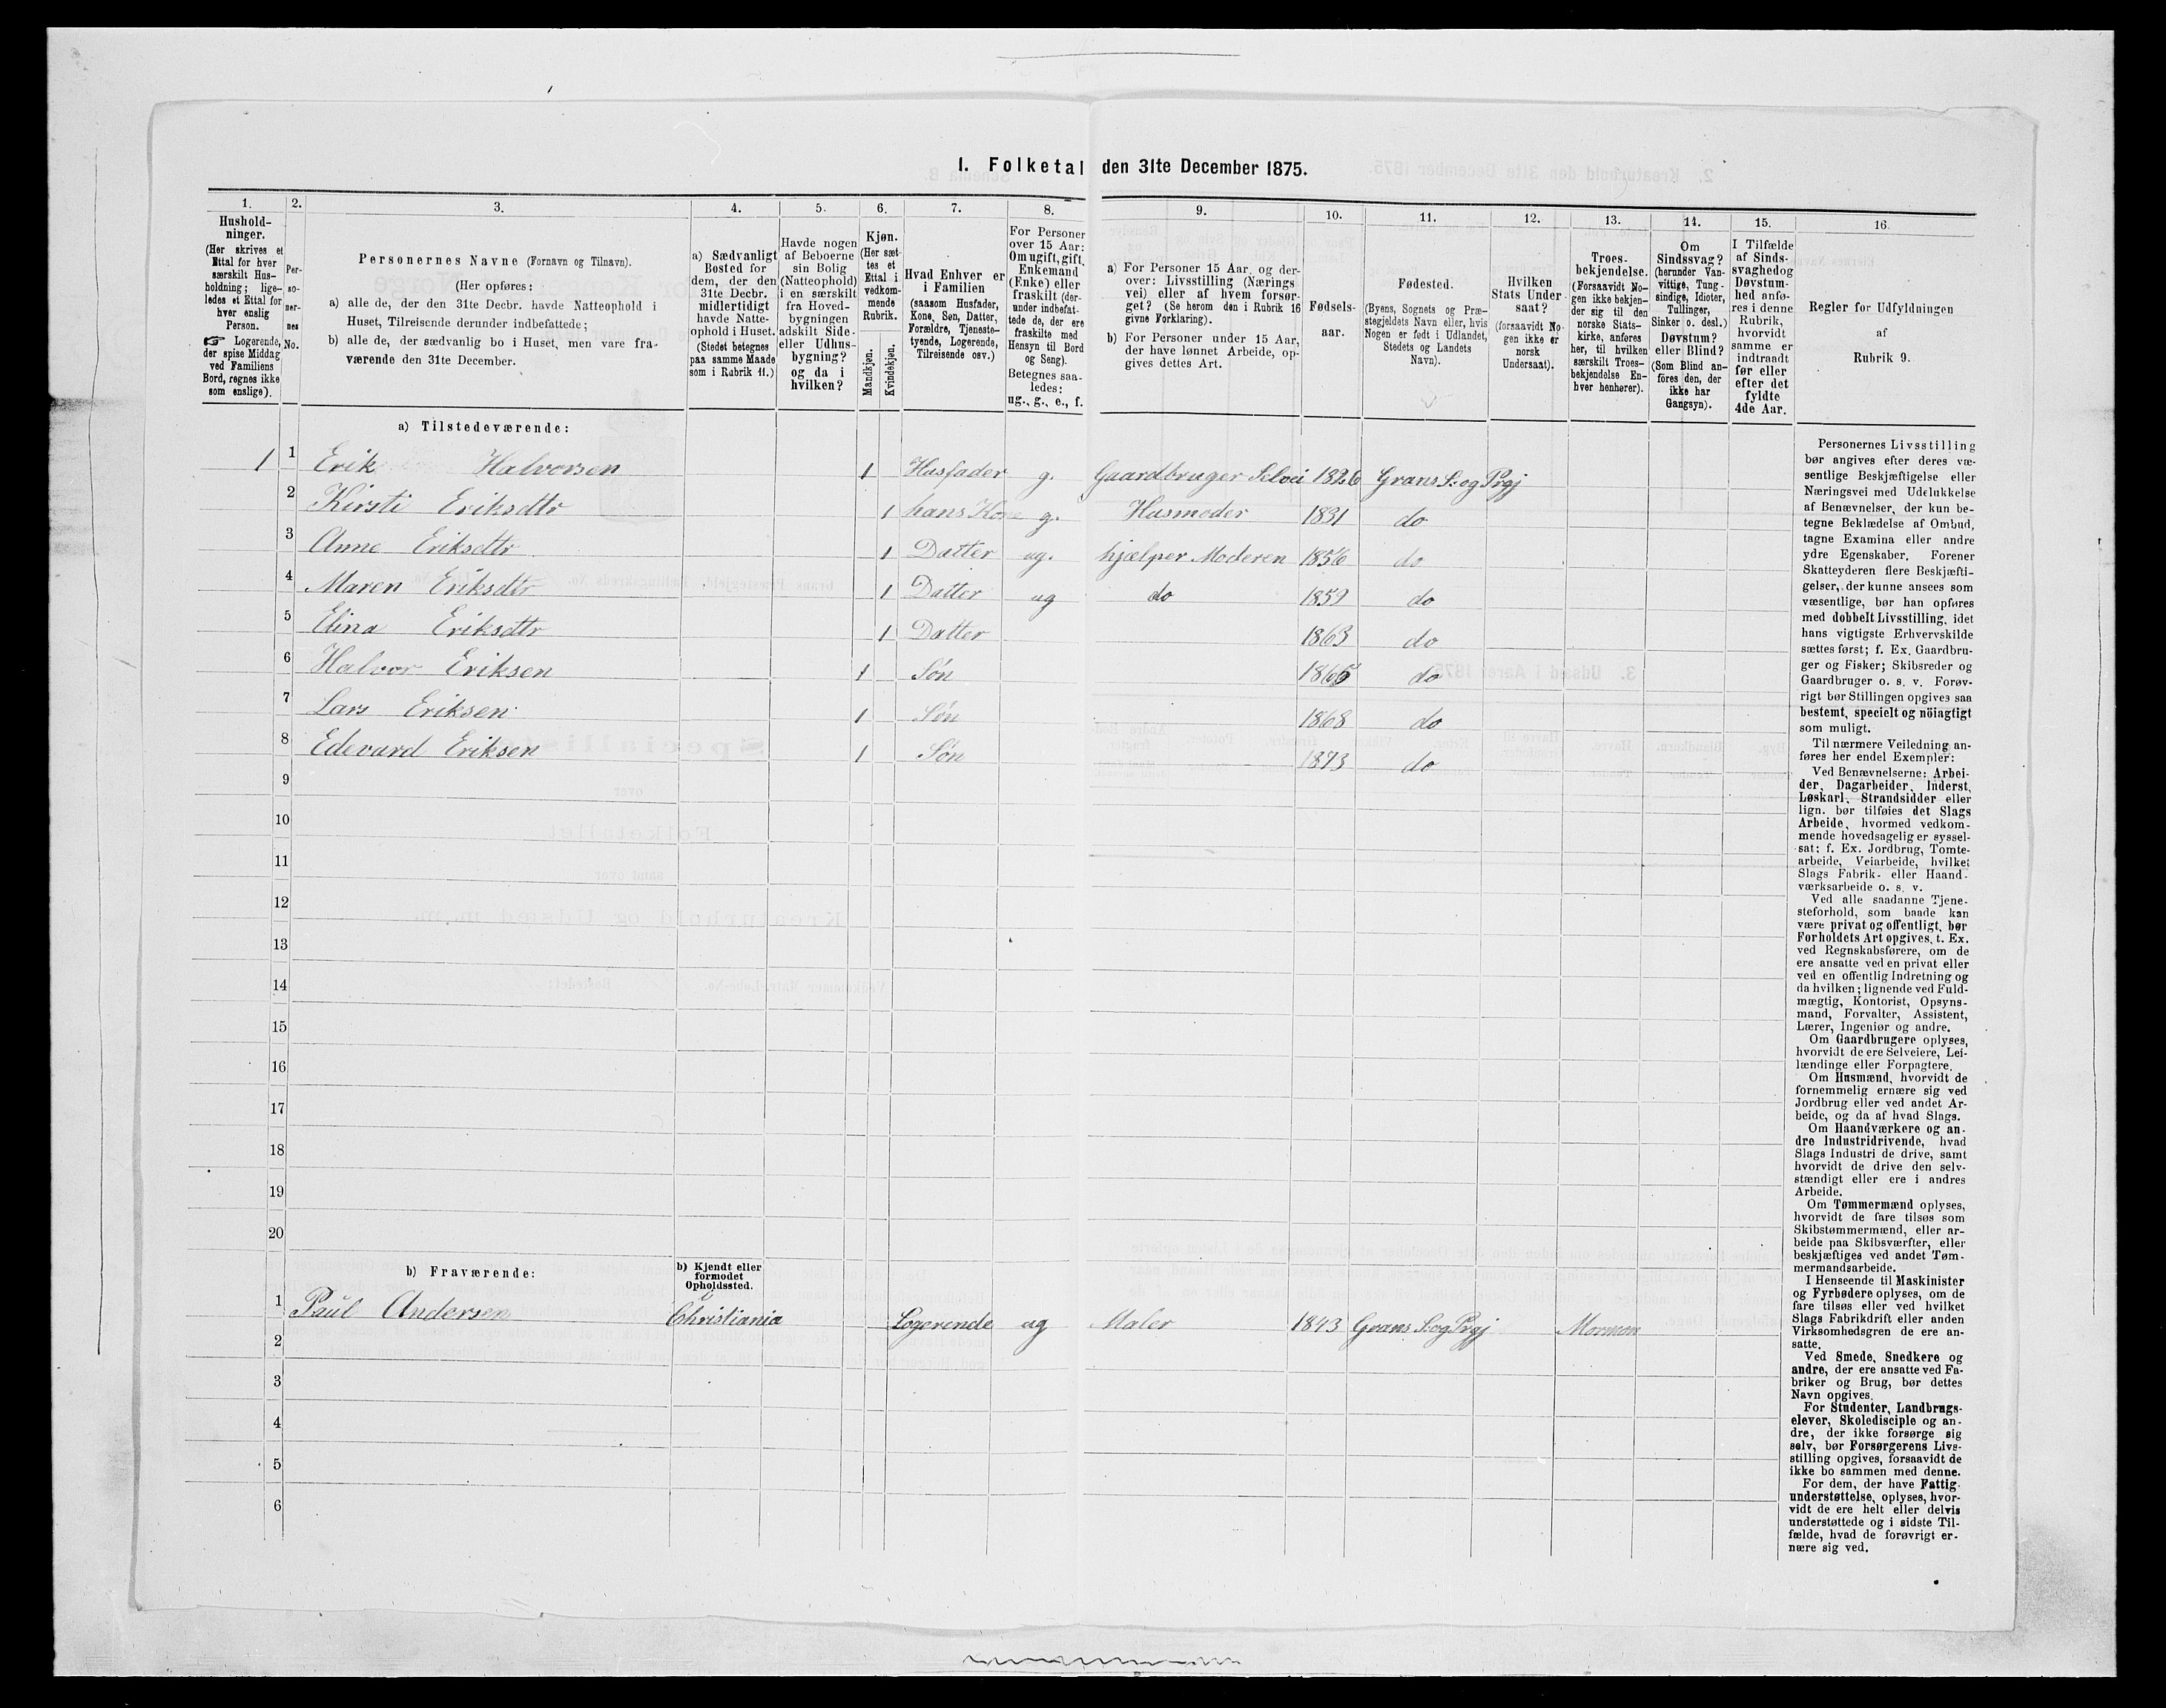 I. Folketal den 31te December 1875.
1. 2. 3. 4. 5. 6. 7. 8. 9. 10. 11. 12. 13. 14. 15. 16.
Hushold-
ninger.
(Her skrives et
Ettal for hver
særskilt Hus-
holdning; lige-
ledes et Ettal for
hver enslig
Person.
☞ Logerende,
der spise Middag
ved Familiens
Bord, regnes ikke
som enslige).
Per-
so-
ner-
nes
No.
Personernes Navne (Fornavn og Tilnavn).
(Her opføres:
a) alle de, der den 31te Decbr. havde Natteophold i
Huset, Tilreisende derunder indbefattede;
b) alle de, der sædvanlig bo i Huset, men vare fra-
værende den 31te December.
a) Sædvanligt
Bosted for
dem, der den
31te Decbr.
midlertidigt
havde Natte-
ophold i Huset.
(Stedet betegnes
paa samme Maade
som i Rubrik 11.)
Havde nogen
af Beboerne
sin Bolig
(Natteophold)
i en særskilt
fra Hoved-
bygningen
adskilt Side-
eller Udhus-
bygning?
og da i
hvilken?
Kjøn.
(Her sæt-
tes et
Ettal i
vedkom-
mende
Rubrik.
Mandkjøn.
Kvindekjøn.
Hvad Enhver er
i Familien
(saasom Husfader,
Kone, Søn, Datter,
Forældre, Tjeneste-
tyende, Logerende,
Tilreisende osv.)
For Personer
over 15 Aar:
Om ugift, gift,
Enkemand
(Enke) eller
fraskilt (der-
under indbefat-
tede de, der ere
fraskilte med
Hensyn til Bord
og Seng).
Betegnes saa-
ledes:
ug., g., e., f.
a) For Personer 15 Aar og der-
over: Livsstilling (Nærings-
vei) eller af hvem forsør-
get? (Se herom den i Rubrik 16
givne Forklaring).
b) For Personer under 15 Aar,
der have lønnet Arbeide, op-
gives dettes Art.
Fødsels-
aar.
Fødested.
(Byens, Sognets og Præ-
stegjeldets Navn eller, hvis
Nogen er født i Udlandet,
Stedets og Landets
Navn).
Hvilken
Stats Under-
saat?
(forsaavidt No-
gen ikke er
norsk
Undersaat).
Troes-
bekjendelse.
(Forsaavidt No-
gen ikke bekjen-
der sig til den
norske Stats-
kirke, anføres
her, til hvilken
særskilt Troes-
bekjendelse En-
hver henhører).
Om
Sindssvag?
(herunder Van-
vittige, Tung-
sindige, Idioter,
Tullinger,
Sinker o. desl.)
Døvstum?
eller Blind?
(Som Blind an-
føres den, der
ikke har
Gangsyn).
I Tilfælde
af Sinds-
svaghed og
Døvstum-
hed anfø-
res i denne
Rubrik,
hvorvidt
samme er
indtraadt
før eller
efter det
fyldte
4de Aar.
Regler for Udfyldningen
af
Rubrik 9.
a) Tilstedeværende:
1 1 Erik Halvorsen 1 Husfader g. Gaardbruger Selvei 1826 Grans S. og Prgj
2 Kirsti Eriksdtr 1 hans Kone g. Husmoder 1831 do
3 Anne Eriksdtr 1 Datter ug. hjælper Moderen 1856 do
4 Maren Eriksdtr 1 Datter ug do 1859 do
5 Elina Eriksdtr 1 Datter 1863 do
6 Halvor Eriksen 1 Søn do
7 Lars Eriksen 1 Søn 1868 do
8 Edevard Eriksen 1 Søn 1873 do
9
10
11
12
13
14
15
16
17
18
19
20
b) Fraværende:
b) Kjendt eller
formodet
Opholdssted.
1 Paul Andersen Christiania Logerende ug Maler 1843 Grans S. og Prgj Mormon
2
3
4
5
6
Personernes Livsstilling
bør angives efter deres væ-
sentlige Beskjæftigelse eller
Næringsvei med Udelukkelse
af Benævnelser, der kun be-
tegne Beklædelse af Ombud,
tagne Examina eller andre
ydre Egenskaber. Forener
Skatteyderen flere Beskjæfti-
gelser, der kunne ansees som
væsentlige, bør han opføres
med dobbelt Livsstilling, idet
hans vigtigste Erhvervskilde
sættes først; f. Ex. Gaardbru-
ger og Fisker; Skibsreder og
Gaardbruger o. s. v. Forøv-
rigt bør Stillingen opgives saa
bestemt, specielt og nöiagtigt
som muligt.
Til nærmere Veiledning an-
føres her endel Exempler:
Ved Benævnelserne: Arbei-
der, Dagarbeider, Inderst,
Løskarl, Strandsidder eller
lign. bør tilføies det Slags
Arbeide, hvormed vedkom-
mende hovedsagelig er syssel-
sat; f. Ex. Jordbrug, Tomte-
arbeide, Veiarbeide, hvilket
Slags Fabrik- eller Haand-
værksarbeide o. s. v.
Ved alle saadanne Tjene-
steforhold, som baade kan
være privat og offentligt, bør
Forholdets Art opgives, t. Ex.
ved Regnskabsførere, om de
ere ansatte ved en privat eller
ved en offentlig Indretning og
da hvilken; lignende ved Fuld-
mægtig, Kontorist, Opsyns-
mand, Forvalter, Assistent,
Lærer, Ingeniør og andre.
Om Gaardbrugere oplyses,
hvorvidt de ere Selveiere, Lei-
lændinge eller Forpagtere.
Om Husmænd, hvorvidt de
fornemmelig ernære sig ved
Jordbrug eller ved andet Ar-
beide, og da af hvad Slags.
Om Haandværkere og an-
dre Industridrivende, hvad
Slags Industri de drive, samt
hvorvidt de drive den selv-
stændigt eller ere i andres
Arbeide.
Om Tømmermænd oplyses,
hvorvidt de fare tilsøs som
Skibstømmermænd, eller ar-
beide paa Skibsværfter, eller
beskjæftiges ved andet Tøm-
mermandsarbeide.
I Henseende til Maskinister
og Fyrbødere oplyses, om de
fare tilsøs eller ved hvilket
Slags Fabrikdrift eller anden
Virksomhedsgren de ere an-
satte.
Ved Smede, Snedkere og
andre, der ere ansatte ved Fa-
briker og Brug, bør dettes
Navn opgives.
For Studenter, Landbrugs-
elever, Skoledisciple og an-
dre, der ikke forsørge sig
selv, bør Forsørgerens Livs-
stilling opgives, forsaavidt de
ikke bo sammen med denne.
For dem, der have Fattig-
understøttelse, oplyses, hvor-
vidt de ere helt eller delvis
understøttede og i sidste Til-
fælde, hvad de forøvrigt er-
nære sig ved.